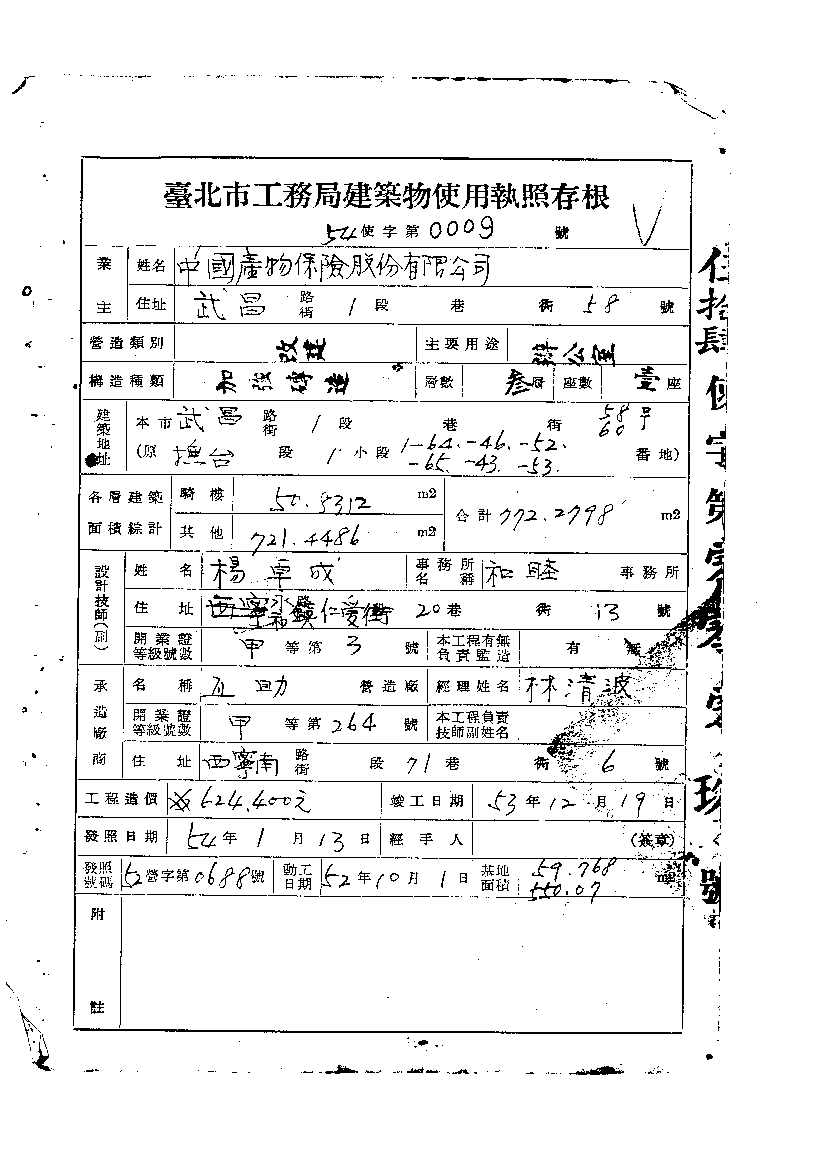 臺北市工務局建築物使用執照存根
54使字第0009號
業主 姓名 中國產物保險股份有限公司
住址 武昌 路街 1段 巷 街 58號
營造類別 改建 主要用途 辦公室
構造種類 加強磚造 層數 叁層 座數 壹座
建築地址 本市武昌 路街 1段 巷 街 58 60號
(原撫台 段 1小段 1-64.-46.-52. -65.-43.-53. 番地)
各層建築面積綜計 騎樓 50.8312 m2 合計 772.2798 m2
其他 721.4486 m2
設計技師(副) 姓名 楊卓成 事務所名稱 和睦 事務所
住址 仁愛街 20巷 街 13號
開業證等級號數 甲等第3號 本工程有無負責監造 有 無
承造廠商 名稱 互助 營造廠 經理姓名 林清波
開業證等級號數 甲等第264號 本工程負責技師副姓名
住址 西寧南 路街 段 71巷 街 6號
工程造價 624.400元 竣工日期 53年12月19日
發照日期 54年1月13日 經手人 (簽章)
發照號碼 52營字第0688號 動工日期 52年10月1日 基地面積 59.768 550.07 m2
附註
伍拾肆使字第零零零玖號